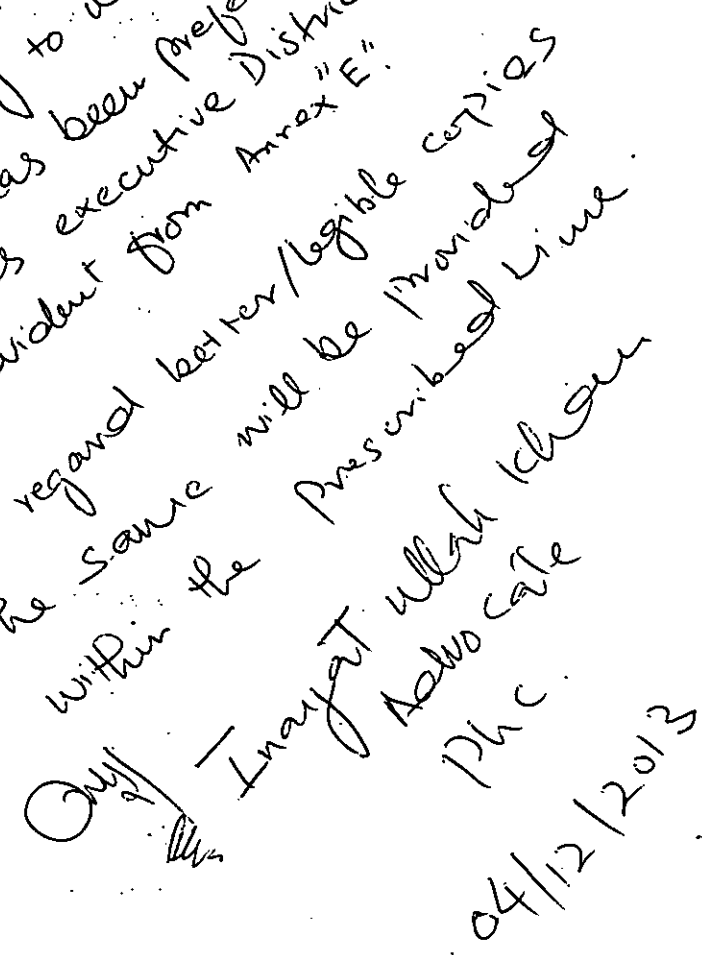 to
been
executive
from Annex "E".
regard better/legible copies
same will be Provided
within the Prescribed time.
Inayat ullah Khan
Advocate
PhC.
04/12/2013